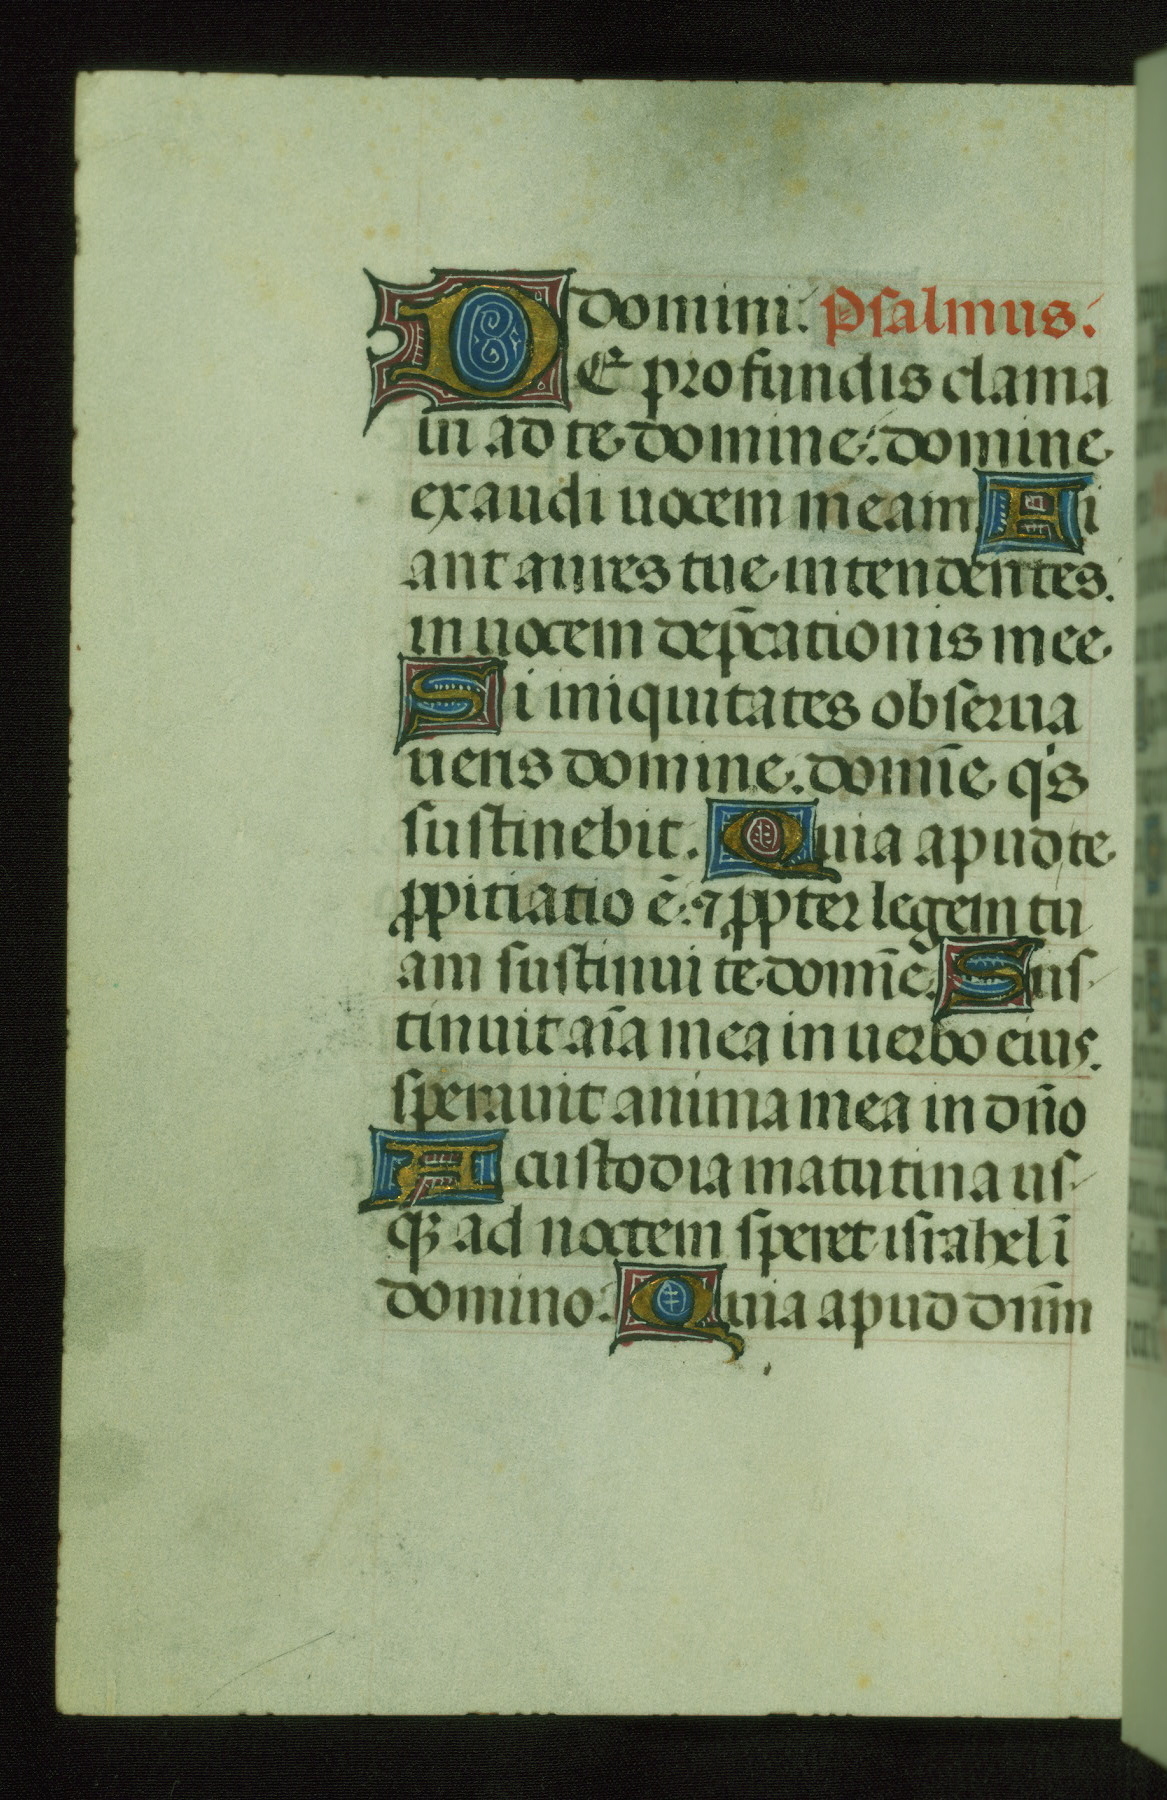 domini. Psalmus.
DE profundis clama
ui ad te domine: domine
exaudi uocem meam. Fi
ant aures tue intendentes.
in uocem dep̄cationis mee
Si iniquitates obserua
ueris domine. domīe q's
sustinebit. Quia apud te
ꝓpitiatio ē: ⁊ ꝓpter legem tu
am sustinui te domīe. Sus
tinuit aīa mea in uerbo eius.
sperauit anima mea in dño
A custodia matutina us
qꝫ ad noctem speret israhel ī
domino. Quia apud dn̄m